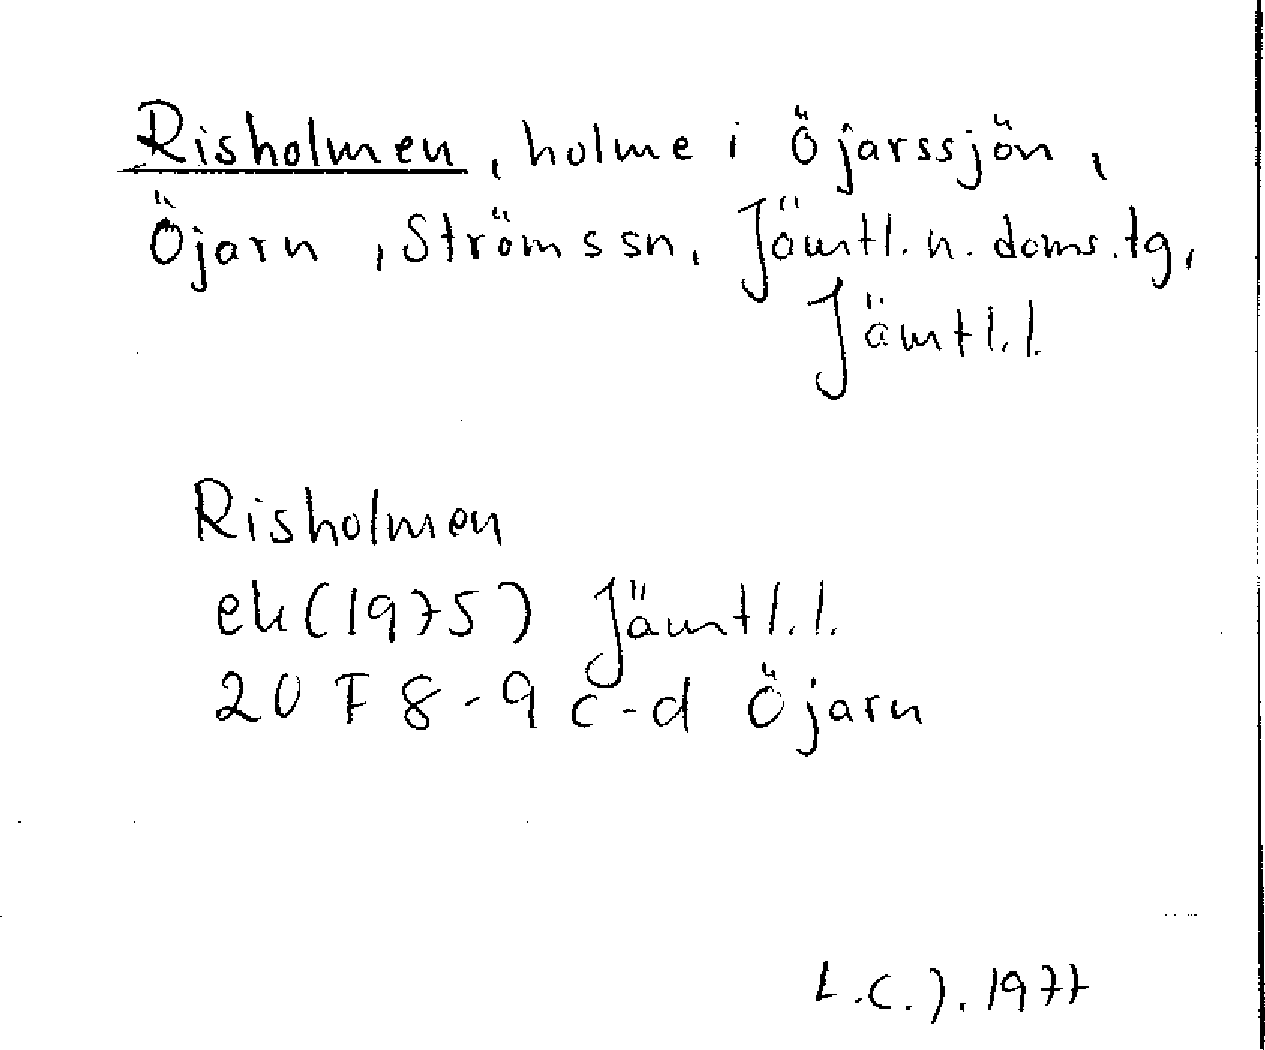 Risholmen, holme i Öjarssjön,
Öjarn, Ströms sn, Jämtl. n. doms. tg,
Jämtl. l.
Risholmen
ek (1975) Jämtl. l.
20 F 8-9 c-d Öjarn
L.C.J. 1977